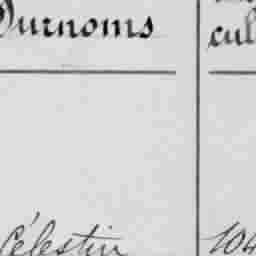 Surnoms
cul
Célestin
104